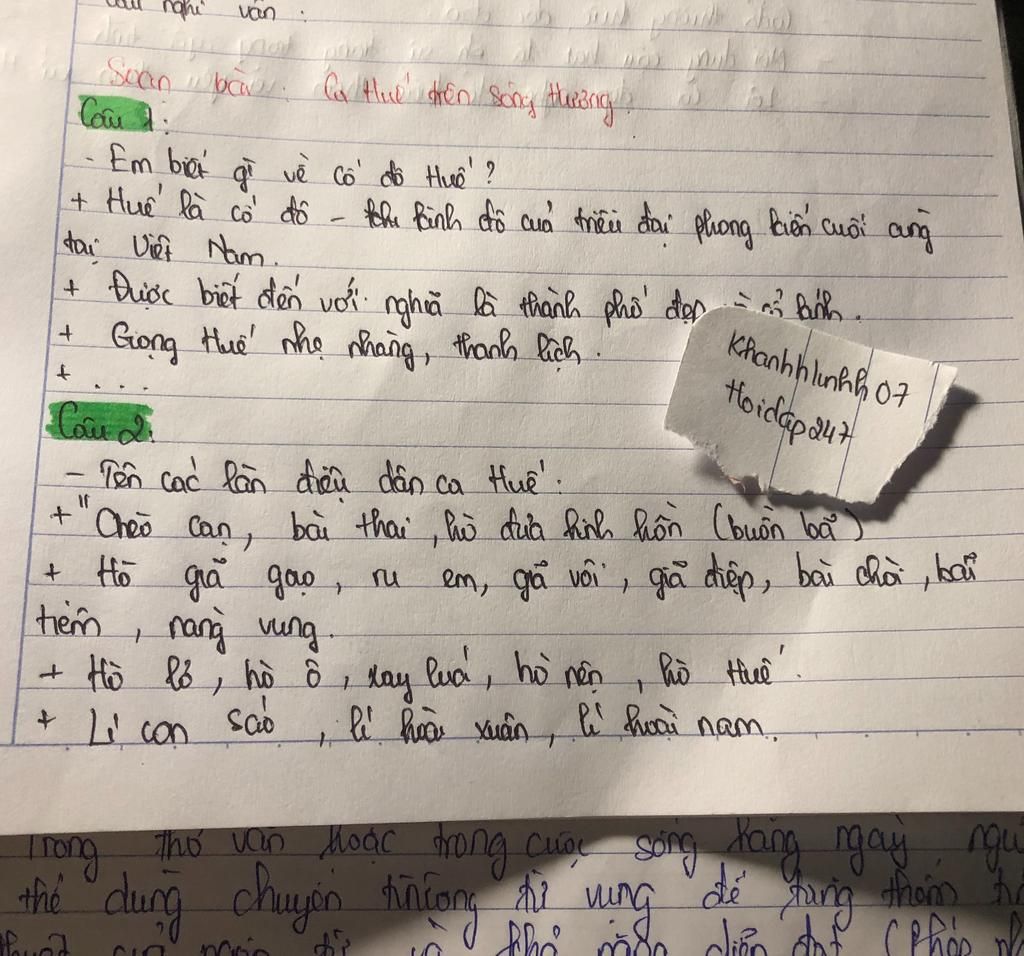 câu nghi vấn.
Soạn bài: Ca Huế trên sông Hương
Câu 1:
- Em biết gì về cố đô Huế?
+ Huế là cố đô - kinh đô của triều đại phong kiến cuối cùng
tại Việt Nam.
+ Được biết đến với nghĩa là thành phố đẹp cổ kính.
+ Giọng Huế nhẹ nhàng, thanh lịch.
+ ...
Khanhhlinhh07
Hoidap247
Câu 2:
- Tên các làn điệu dân ca Huế:
+ "Chèo cạn, bài thai, hò đưa linh hồn (buồn bã)
+ Hò giã gạo, ru em, giã vôi, giã điệp, bài chòi, bài
tiệm, nàng vung.
+ Hò lơ, hò ô, xay lúa, hò nện, hò Huế.
+ Lí con sáo, lí hoài xuân, lí hoài nam.
Trong thơ văn hoặc trong cuộc sống hàng ngày
thể dùng chuyển trường từ vựng để tăng thêm
khả năng diễn đạt (Phép